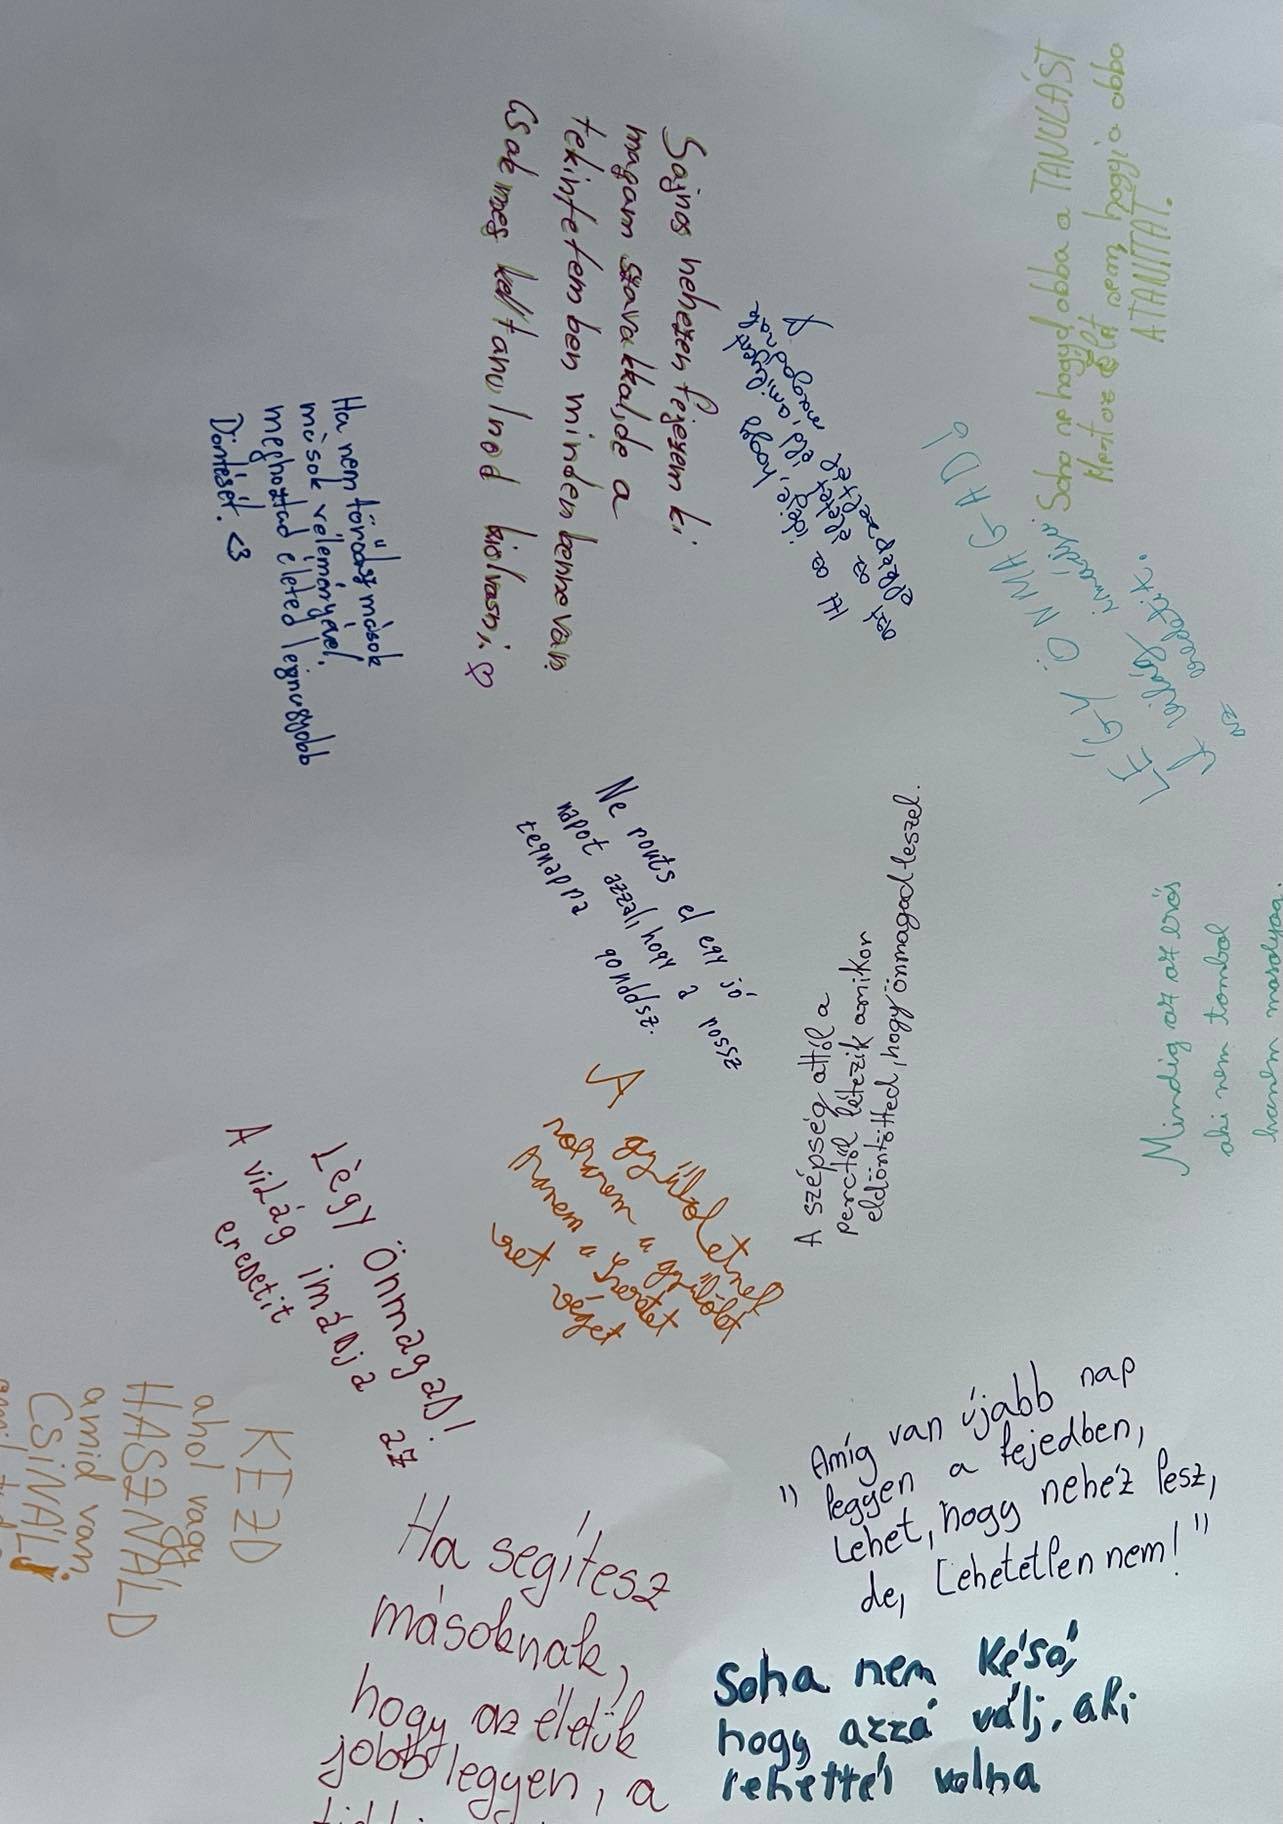 Soha ne hagyd abba a TANULÁST
Mert az élet sem hagyja abba
A TANÍTÁT.
Sajnos nehezen fejezem ki
magam szavakkal, de a
tekintetemben minden benne van
Csak meg kell tanulnod kiolvasni ♡
Itt az ideje, hogy
azt az életet éld, amilyent
elképzeltél magadnak
Ha nem törődsz mások
mások véleményével,
meghoztad életed legnagyobb
Döntését. <3
LÉGY ÖNMAGAD!
A világ imádja
az eredetit.
Ne ronts el egy jó
napot azzal, hogy a rossz
tegnapra gondolsz.
A szépség attól a
perctől létezik amikor
eldöntötted, hogy önmagad leszel.
Mindig az az erős
aki nem tombol
hanem mosolyog.
A gyűlöletnek
nem a gyűlölet
hanem a szeretet
vet véget
Légy Önmagad!
A világ imádja az
eredetit
KEZD
ahol vagy
HASZNÁLD
amid van.
CSINÁLJ
"Amíg van újabb nap
leggen a fejedben,
Lehet, hogy nehéz lesz,
de, Lehetetlen nem!"
Ha segítesz
másoknak,
hogy az életük
jobb legyen, a
Soha nem késő,
hogy azzá válj, aki
lehettél volna